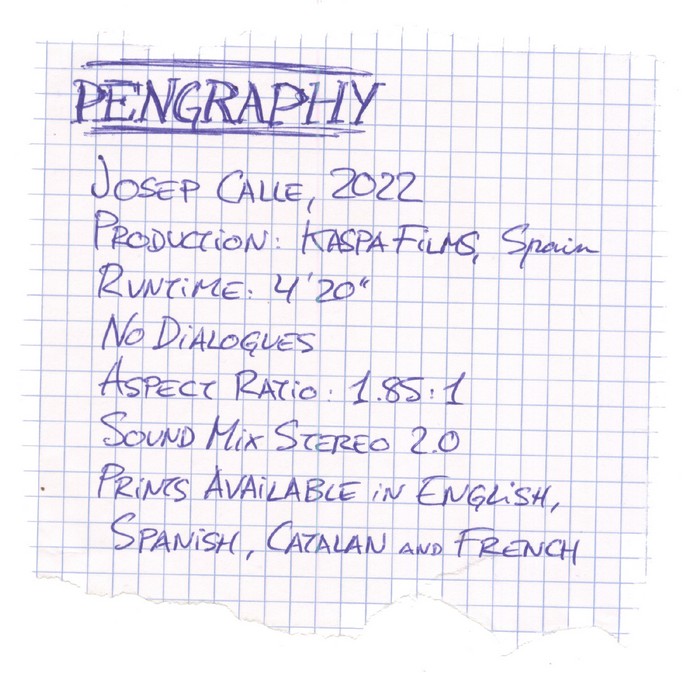 PENGRAPHY
JOSEP CALLE, 2022
PRODUCTION: KASPA FILMS, Spain
RUNTIME: 4'20"
NO DIALOGUES
ASPECT RATIO: 1.85:1
SOUND MIX STEREO 2.0
PRINTS AVAILABLE IN ENGLISH,
SPANISH, CATALAN AND FRENCH